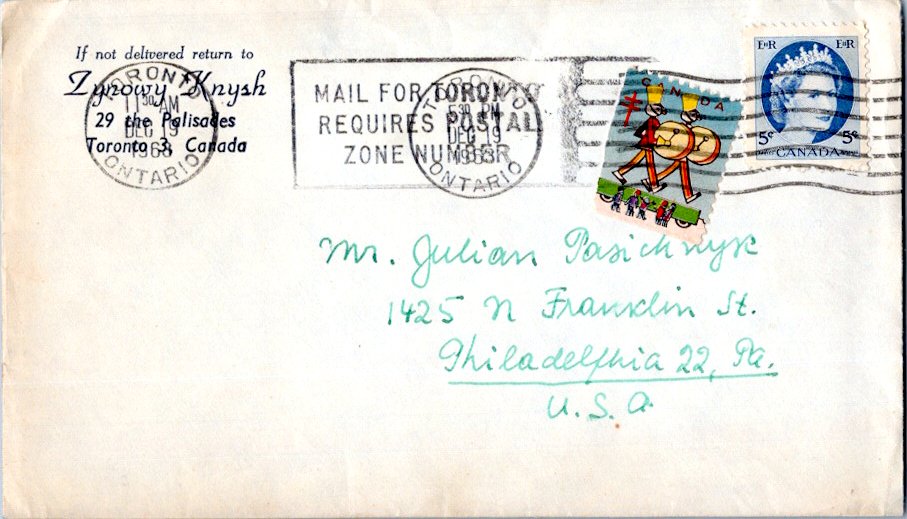 If not delivered return to
Zynowy Knysh
29 the Palisades
Toronto 3, Canada
TORONTO
11 30 AM
DEC 19
1963
ONTARIO
MAIL FOR TORONTO
REQUIRES POSTAL
ZONE NUMBER
TORONTO
630 PM
DEC 19
1963
ONTARIO
CANADA
EIIR EIIR
5¢ 5¢
CANADA
Mr. Julian Pasichnyk
1425 N Franklin St.
Philadelphia 22, Pa.
U.S.A